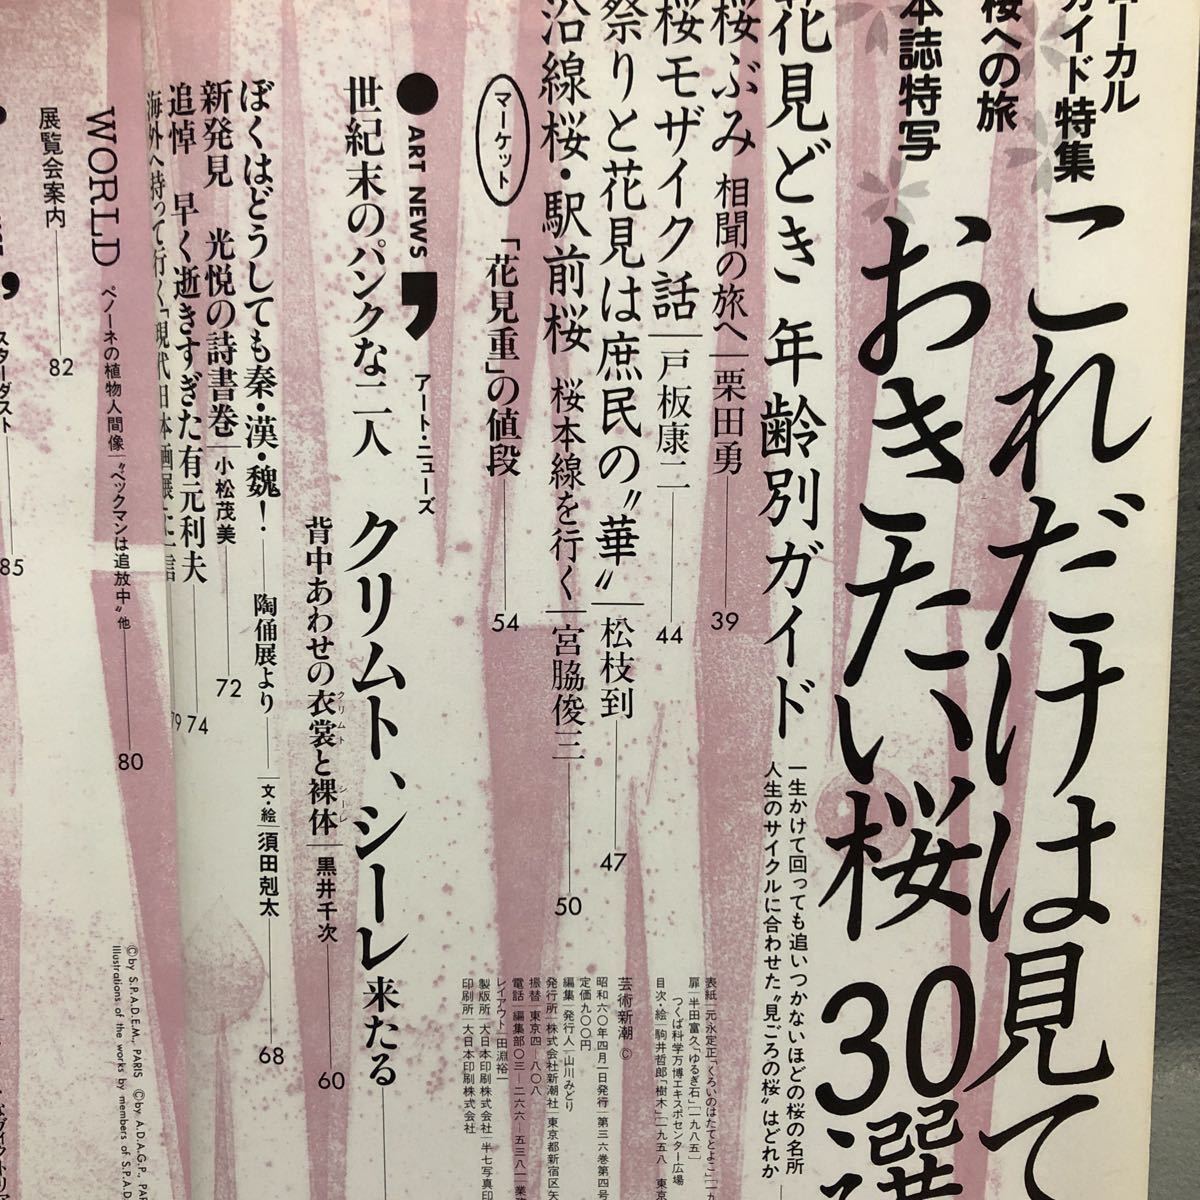 ローカル
ガイド特集
桜への旅
本誌特写
これだけは見て
おきたい桜30選
一生かけて回っても追いつかないほどの桜の名所
人生のサイクルに合わせた〝見ごろの桜〟はどれか
花見どき 年齢別ガイド
桜ぶみ 相聞の旅へ 栗田勇 39
桜モザイク話 戸板康二 44
祭りと花見は庶民の〝華〟 松枝到 47
沿線桜・駅前桜 桜本線を行く 宮脇俊三 50
マーケット 「花見重」の値段 54
表紙 元永定正「くろいのはたてとよこ」[一九
扉 半田富久「ゆるぎ石」[一九八五]
つくば科学万博エキスポセンター広場
目次・絵 駒井哲郎「樹木」[一九五八 東京
芸術新潮 ©
昭和六〇年四月一日発行 第三六巻第四号
定価九〇〇円
編集 発行人 山川みどり
発行所 株式会社新潮社 東京都新宿区矢
振替 東京四—八〇八
電話 編集部〇三—二六六—五三八一 業務
レイアウト 田淵裕一
製版所 大日本印刷株式会社 半七写真印
印刷所 大日本印刷株式会社
●ART NEWS アート・ニューズ
世紀末のパンクな二人 クリムト、シーレ来たる
背中あわせの衣裳と裸体 黒井千次 60
クリムト シーレ
ぼくはどうしても秦・漢・魏! 陶俑展より 文・絵 須田剋太 68
新発見 光悦の詩書巻 小松茂美 72
追悼 早く逝きすぎた有元利夫 74
海外へ持って行く「現代日本画展」に一言 79
WORLD ペノーネの植物人間像 〝ベックマンは追放中〟他 80
展覧会案内 82
©by S.P.A.D.E.M., PARIS ©by A.D.A.G.P., PA
Illustrations of the works by members of S.P.A.D
スターダスト 85